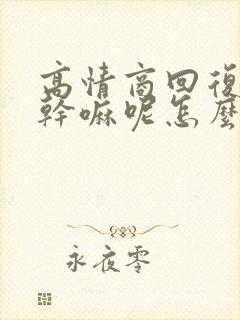 高情商回復
幹嘛呢怎麼
永夜零